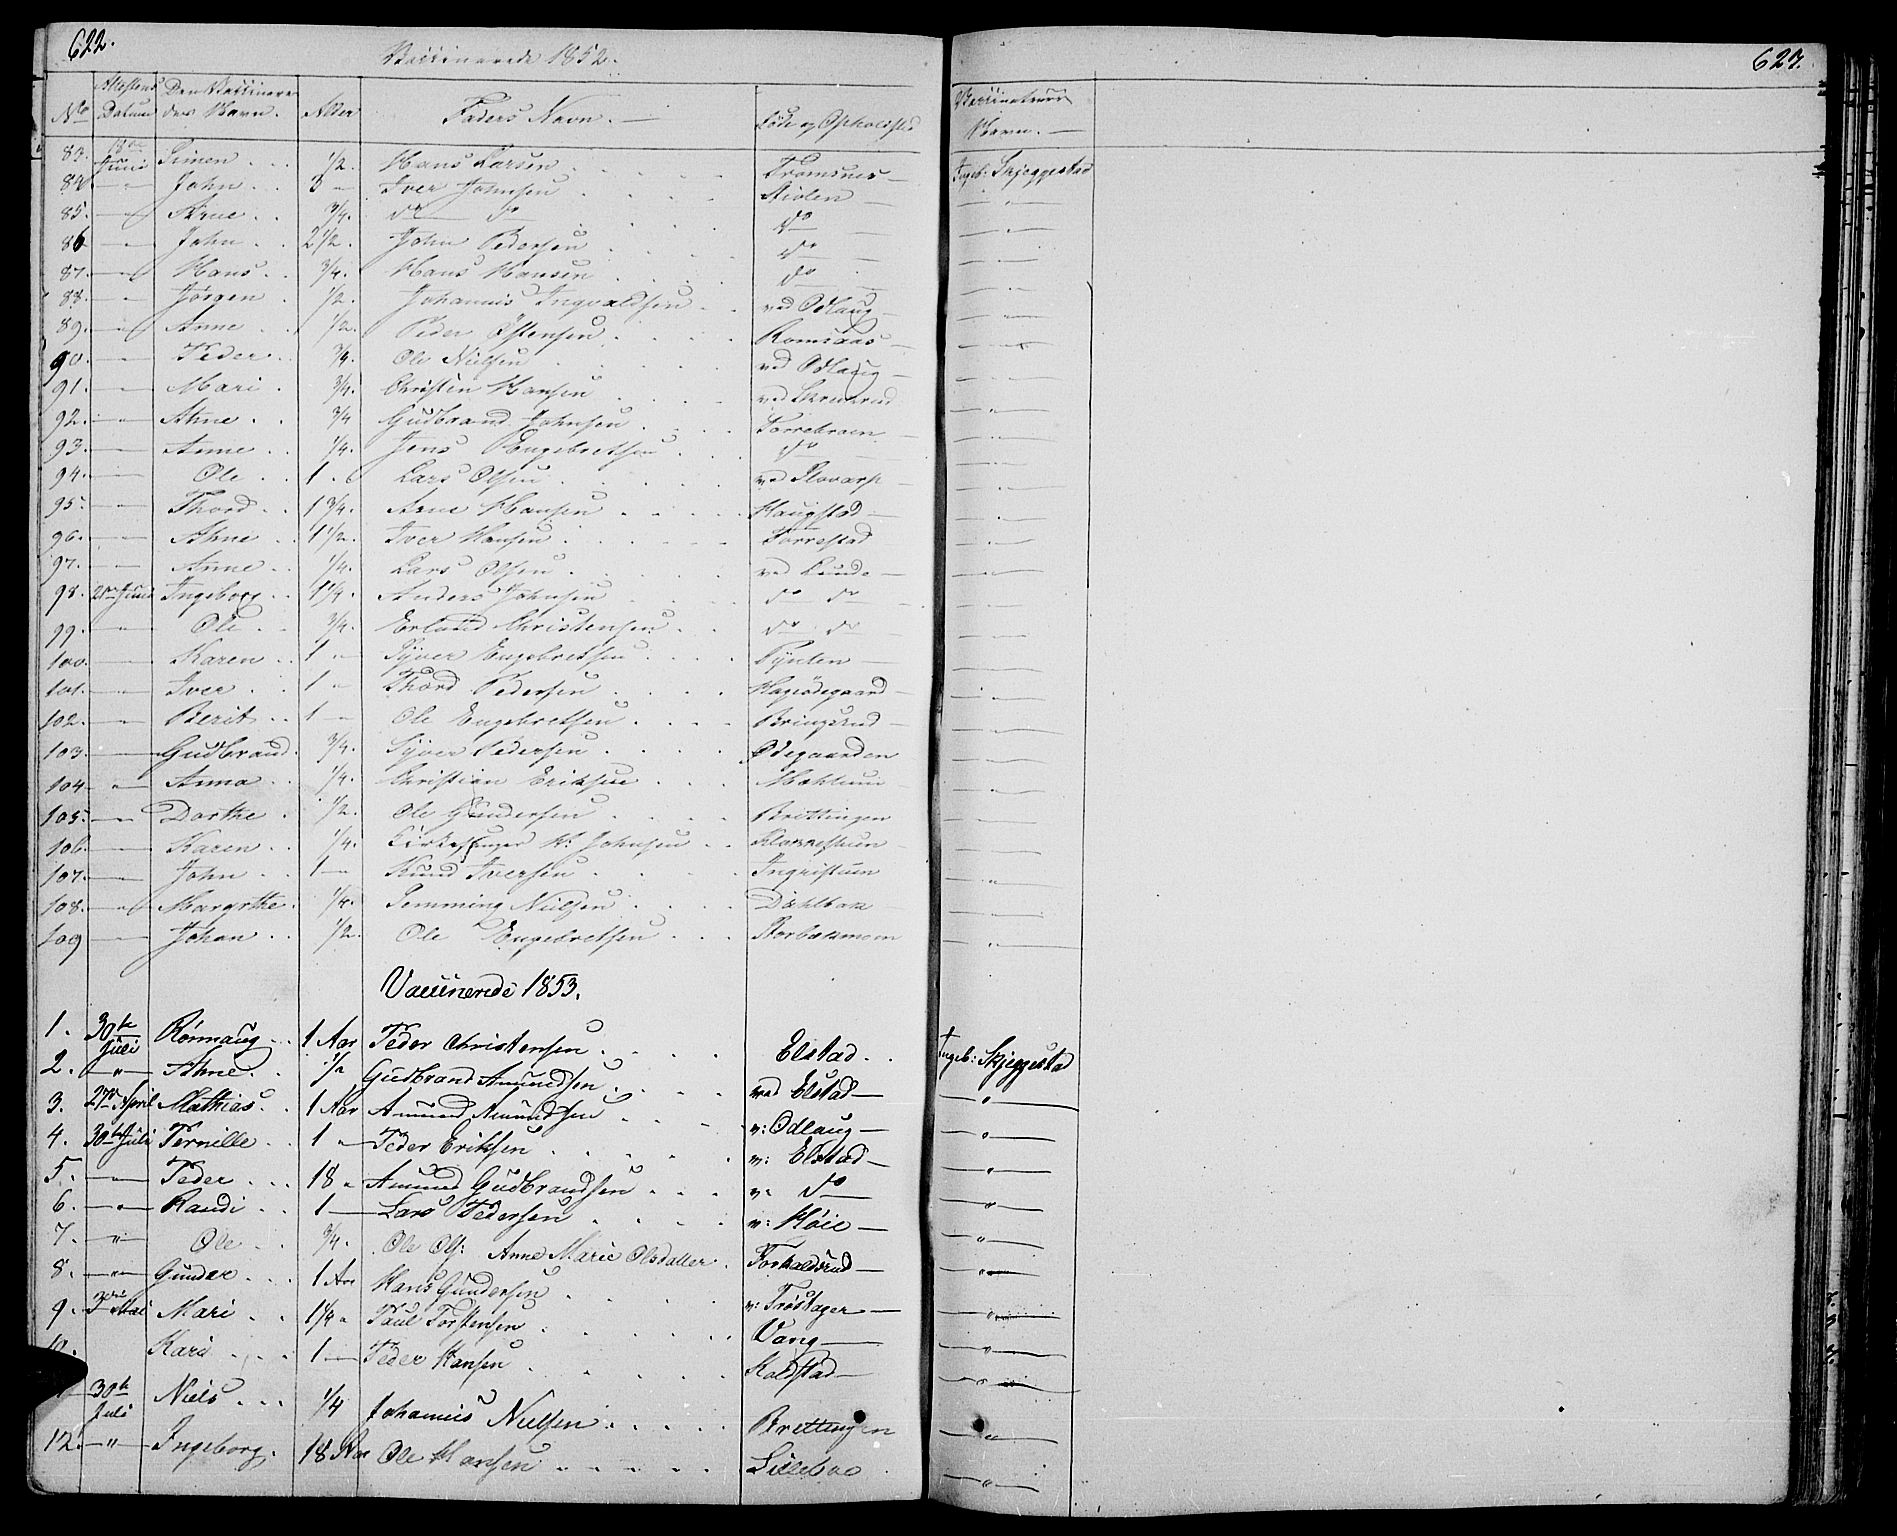 622.
Vaccinerede 1852.
No Attestens Datum Den Vaccineredes Navn. Alder Faders Navn. Føde og Opholdsted
83. 18de Juni Simen 1/2. Hans Larsen Tromsnes
84. " John 3 " Iver Johnsen Stolen
85. " Arne 3/4. do do do
86 " John 2 1/2. John Pedersen do
87. " Hans 3/4. Hans Hansen do
88. " Jørgen 1/2. Johannis Ingvaldsen ved Odlaug
89. " Anne 1/2. Peder Østensen Romsaas
90. " Peder 3/4. Ole Nielsen ved Odlaug
91. " Mari 3/4. Christen Hansen ved
92. " Ahne 3/4 Gudbrand Johnsen
93. " Anne 1/4. Jens Engebretsen do
94. " Ole 1 Lars Olsen ved
95. " Thord 1 3/4. Arne Hansen Haugstad
96. " Ahne 1 1/2. Iver Hansen Forrestad
97. " Anne 1/4. Lars Olsen ved Lunde
98. Juni Ingeborg 1 1/4. Anders Johnsen do do
99. " Ole 3/4. Erland Christensen do do
100. " Karen 1 " Syver Engebretsen
101. " Iver 1 " Thord Pedersen Hageødegaard
102. " Berit 1 " Ole Engebretsen Bringsrud
103. " Gudbrand 3/4. Syver Pedersen Ødegaarden
104. " Anna 1/4. Christian Eriksen Mæhlum
105. " Dorthe 1/2. Ole Gundersen Brettingen
106. " Karen 1/4. Kirkesanger H: Johnsen Klokkestuen
107. " John 1 " Knud Iversen Ingristuen
108. " Margrthe 1/4. Nielsen Dahlbak
109 " Johan 1/2. Ole Engebretsen Storbækmoen
Vaccinerede 1853.
1. 30te Juli Rønnaug 1 Aar Peder Christensen Elstad
2. " Ahne 1/2 Gudbrand Amundsen ved Elstad
3. 27de April Mathias 1 Aar Amund Amundsen v: Odlaug
4. 30te Juli Pernille 1 " Peder Eriksen v: Elstad
5. " Peder 18 " Amund Gudbrandsen v: do
6. " Randi 1 Lars Pedersen v: Høie
7. " Ole 3/4. Ole Ols: Anne Marie Olsdatter
8. " Gunder 1 Aar Hans Gundersen v: Trøstager
9. Mai Mari 1 1/4 " Paul Torstensen Vang
10. Kari 1 Peder Hansen Kolstad
30te Juli Niels 1/4 Johannis Nielsen Brettingen
12. " Ingeborg 18 Aar Ole Hansen Lillebae
627.
Vaccinateurs Navn.
Ingeb: Skjeggestad
Ingeb: Skjeggestad